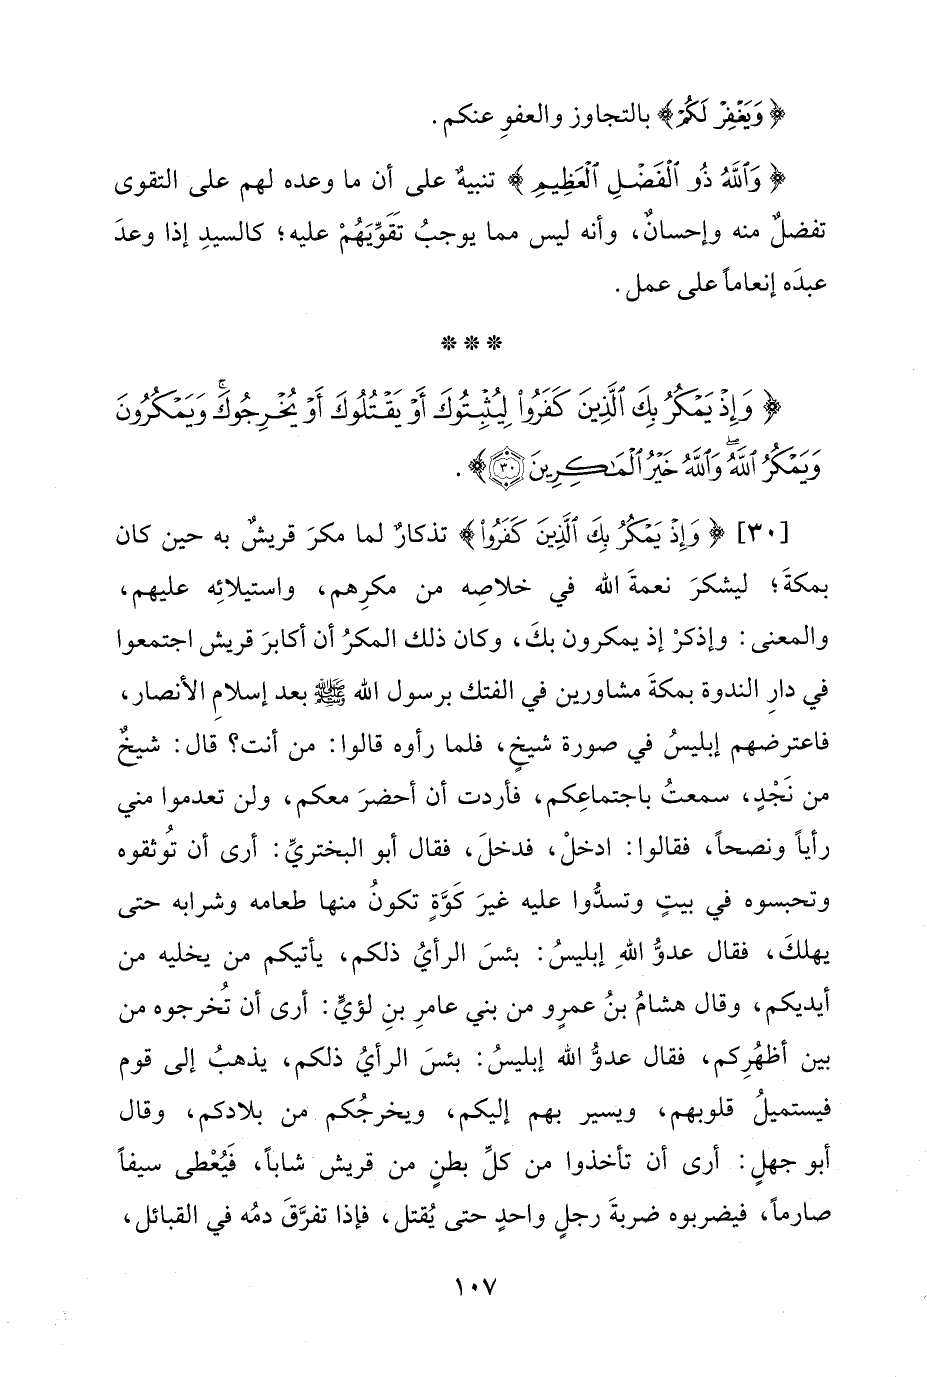 ﴿ وَيَغْفِرْ لَكُمْ ﴾ بالتجاوز والعفوِ عنكم .
﴿ وَٱللَّهُ ذُو ٱلْفَضْلِ ٱلْعَظِيمِ ﴾ تنبيهٌ على أن ما وعده لهم على التقوى
تفضلٌ منه وإحسانٌ، وأنه ليس مما يوجبُ تَقَوِّيَهُمْ عليه؛ كالسيدِ إذا وعدَ
عبدَه إنعاماً على عمل .
* * *
﴿ وَإِذْ يَمْكُرُ بِكَ ٱلَّذِينَ كَفَرُوا۟ لِيُثْبِتُوكَ أَوْ يَقْتُلُوكَ أَوْ يُخْرِجُوكَ ۚ وَيَمْكُرُونَ
وَيَمْكُرُ ٱللَّهُ ۖ وَٱللَّهُ خَيْرُ ٱلْمَـٰكِرِينَ ﴿٣٠﴾ ﴾ .
[٣٠] ﴿ وَإِذْ يَمْكُرُ بِكَ ٱلَّذِينَ كَفَرُوا۟ ﴾ تذكارٌ لما مكرَ قريشٌ به حين كان
بمكةَ؛ ليشكرَ نعمةَ الله في خلاصِه من مكرِهم، واستيلائِه عليهم،
والمعنى: وإذكرْ إذ يمكرون بكَ، وكان ذلك المكرُ أن أكابرَ قريش اجتمعوا
في دارِ الندوة بمكةَ مشاورين في الفتك برسول الله ﷺ بعد إسلامِ الأنصار،
فاعترضهم إبليسُ في صورة شيخٍ، فلما رأوه قالوا: من أنت؟ قال: شيخٌ
من نَجْدٍ، سمعتُ باجتماعِكم، فأردت أن أحضرَ معكم، ولن تعدموا مني
رأياً ونصحاً، فقالوا: ادخلْ، فدخلَ، فقال أبو البختريِّ: أرى أن تُوثقوه
وتحبسوه في بيتٍ وتسدُّوا عليه غيرَ كَوَّةٍ تكونُ منها طعامه وشرابه حتى
يهلكَ، فقال عدوُّ اللهِ إبليسُ: بئسَ الرأيُ ذلكم، يأتيكم من يخليه من
أيديكم، وقال هشامُ بنُ عمرٍو من بني عامرِ بنِ لؤيٍّ: أرى أن تُخرجوه من
بين أظهُرِكم، فقال عدوُّ الله إبليسُ: بئسَ الرأيُ ذلكم، يذهبُ إلى قوم
فيستميلُ قلوبهم، ويسير بهم إليكم، ويخرجُكم من بلادكم، وقال
أبو جهلٍ: أرى أن تأخذوا من كلِّ بطنٍ من قريش شاباً، فَيُعْطى سيفاً
صارماً، فيضربوه ضربةَ رجلٍ واحدٍ حتى يُقتل، فإذا تفرَّقَ دمُه في القبائل،
١٠٧